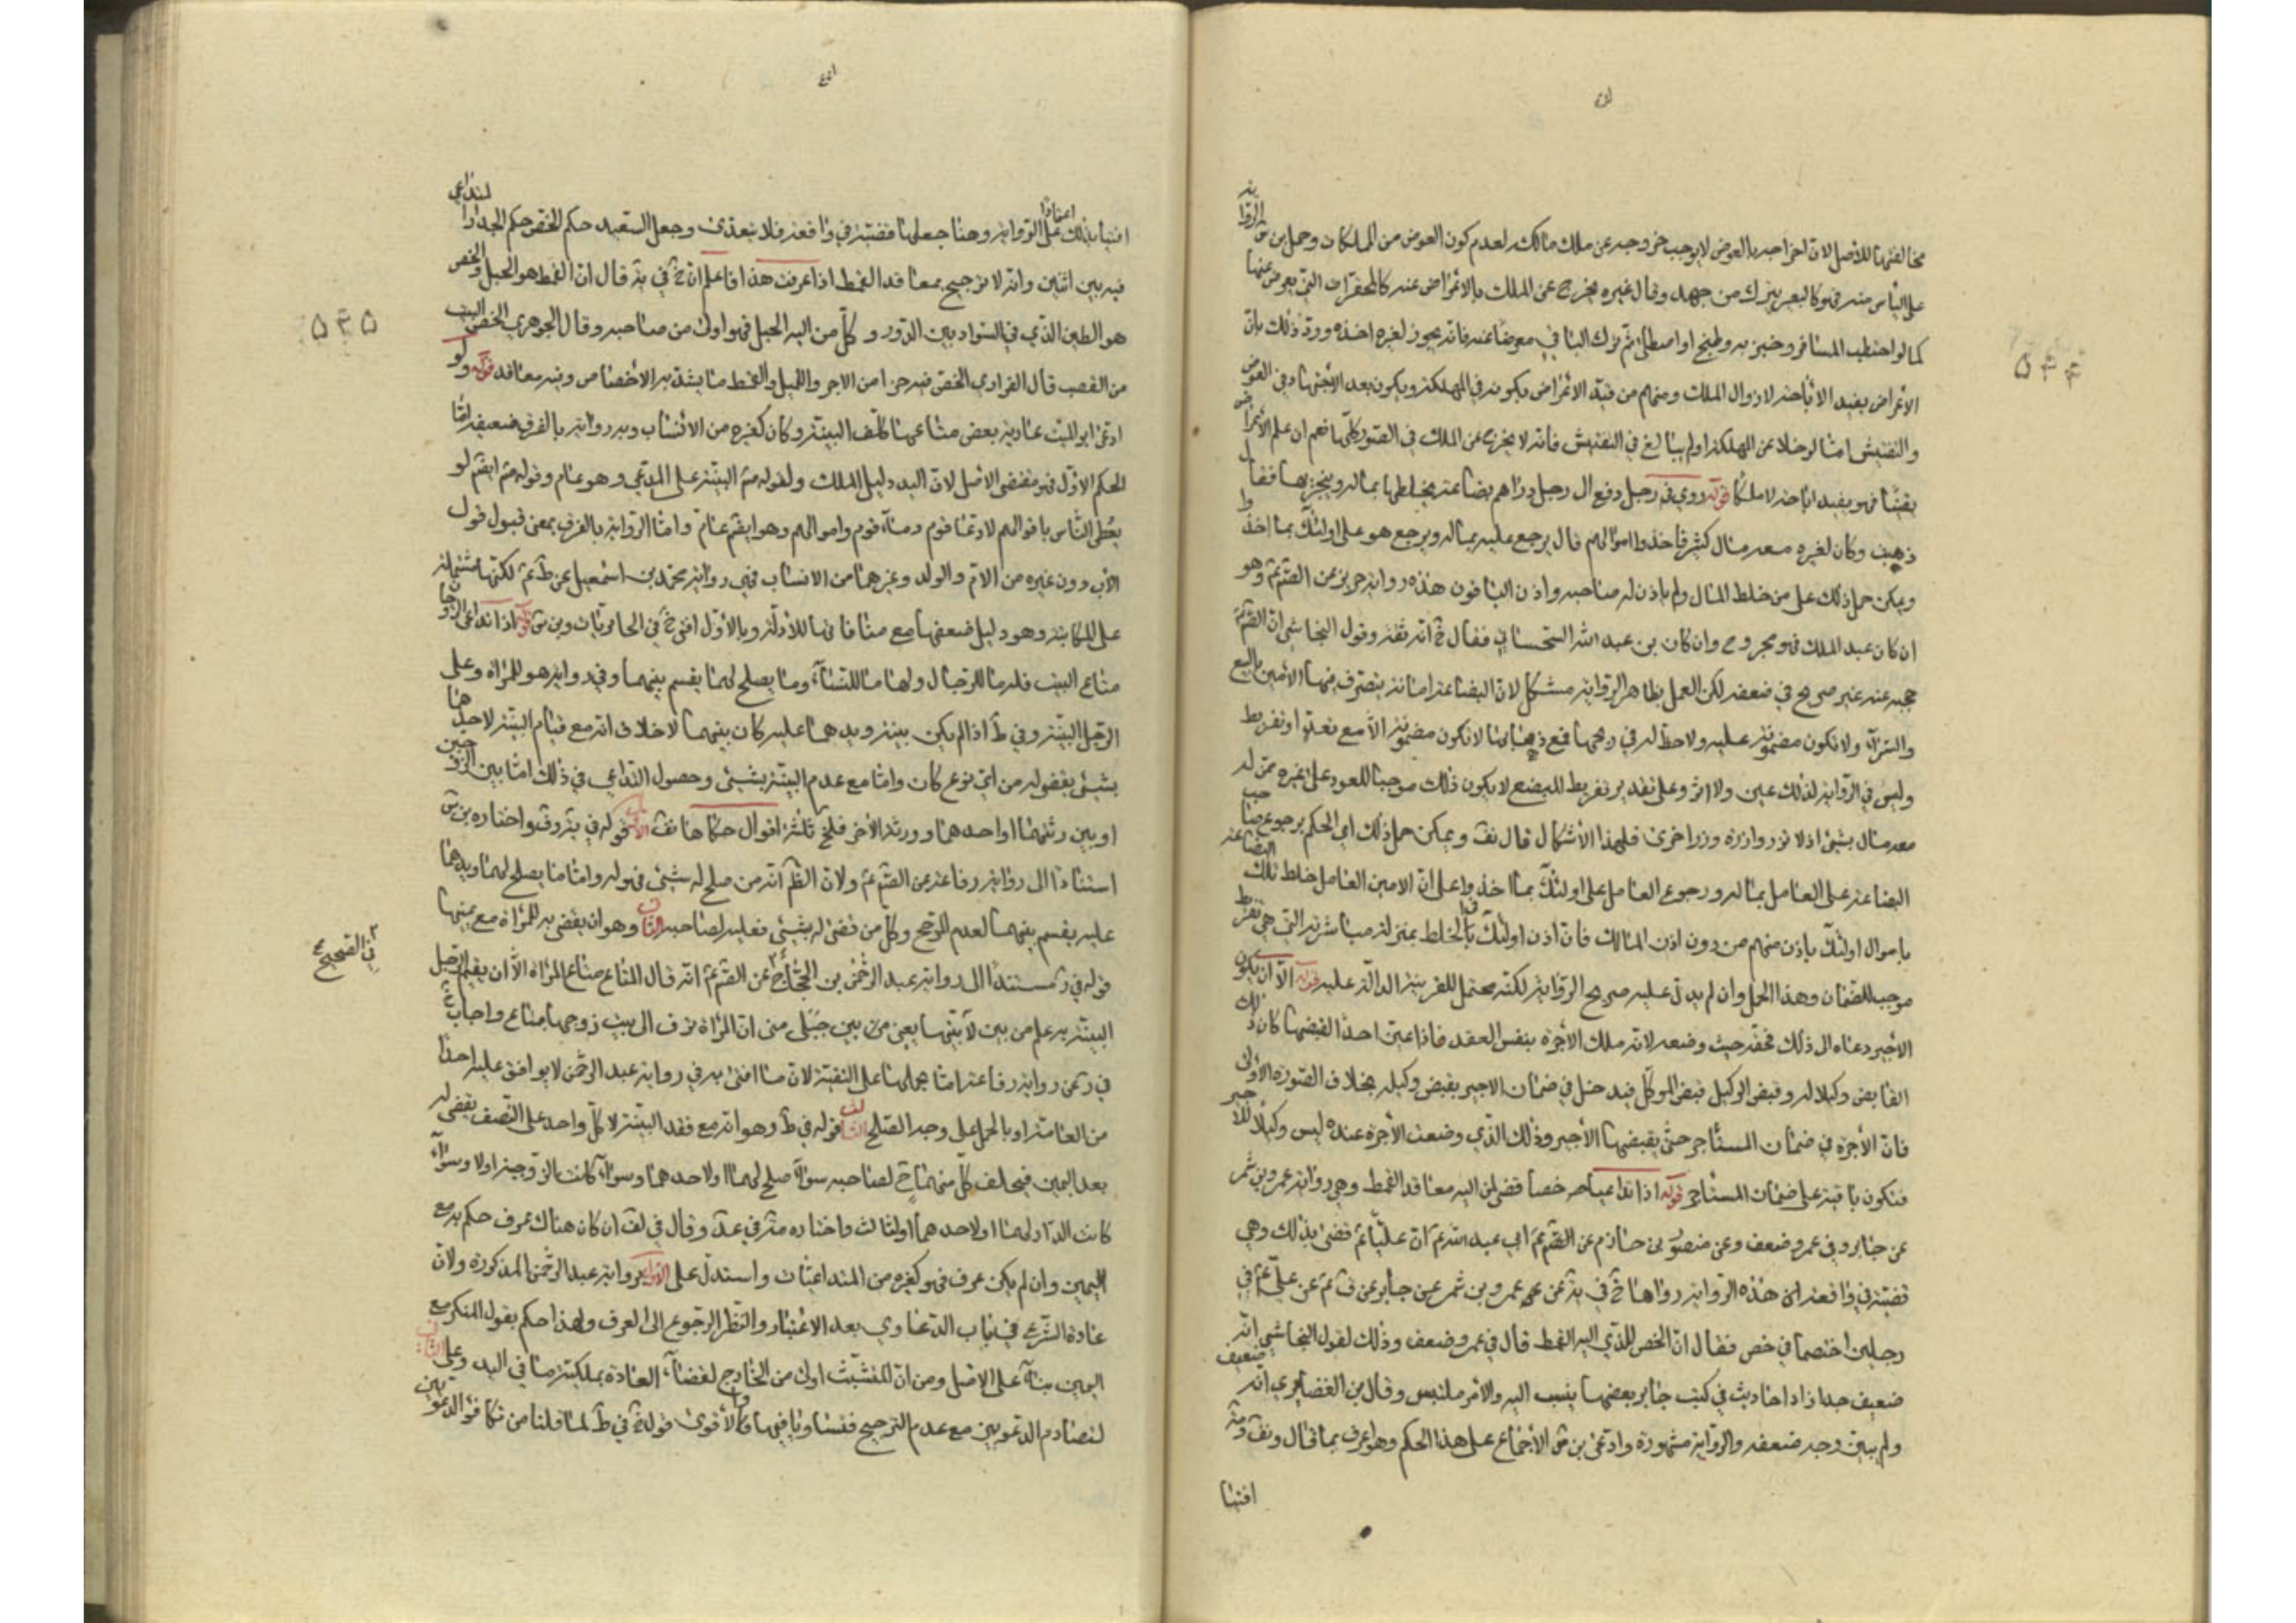 مخالفتها للأصل لان اخراجه بالعوض لا يوجب خروجه عن ملك مالكه لعدم كون العوض من المملكات وحمل بن س الرواية
على اليأس منه فهو كالبعير يترك من جهد وقال غيره يخرج عن الملك بالاعراض عنه كالمحقرات التي يعرض عنها
كما لو احتطب المسافر وخبز به وطبخ او اصطلى ثم ترك الباقي معرضا عنه فانه يجوز لغيره اخذه ورد ذلك بان
الاعراض يفيد الاباحة لا زوال الملك ومنهم من قيد الاعراض بكونه في المهلكة وبكون بعد الاجتهاد في الغوص
والتفتيش اما لو خلا عن المهلكة او لم يبالغ في التفتيش فانه لا يخرج عن الملك في الصور كلها نعم ان علم الاعراض
يقينا فهو يفيد اباحة لا ملكا قوله روي في رجل دفع الى رجل دراهم بضاعة يخلطها بماله ويتجر بها فقال
ذهبت وكان لغيره معه مال كثير فاخذوا اموالهم قال يرجع عليه بماله ويرجع هو على اولئك بما اخذوا
ويمكن حمل ذلك على من خلط المال ولم ياذن له صاحبه واذن الباقون هذه رواية حريز عن الص ع وهو
ان كان عبد الملك فهو مجروح وان كان بن عبد الله السجستاني فقال خ انه ثقة وقول النجاشي ان الص ع
حجبه عنه غير صريح في ضعفه لكن العمل بظاهر الرواية مشكل لان البضاعة امانة يتصرف فيها الامين بالبيع
والشراء ولا تكون مضمونة عليه ولا حظ له في ربحها فمع ذهابها لا تكون مضمونة الا مع تعد او تفريط
وليس في الرواية لذلك عين ولا اثر وعلى تقدير تفريط المبضع لا يكون ذلك موجبا للعود على غيره ممن له
معه مال بشيء اذ لا تزر وازرة وزر اخرى فلهذا الاشكال قال نف ويمكن حمل ذلك اي الحكم برجوع صاحب
البضاعة على العامل بماله ورجوع العامل على اولئك بما اخذوا على ان الامين العامل خلط تلك البضاعة
باموال اولئك باذن منهم من دون اذن المالك فان اذن اولئك بالخلط بمنزلة مباشرته التي هي تفريط
موجب للضمان وهذا الحمل وان لم يدل عليه صريح الرواية لكنه محتمل للقرينة الدالة عليه قوله الا ان يكون
الاجير دعاه الى ذلك فحقه حيث وضعه لانه ملك الاجرة بنفس العقد فاذا عين احدا لقبضها كان ذلك
القابض وكيلا له وقبض الوكيل قبض الموكل فيدخل في ضمان الاجير بقبض وكيله بخلاف الصورة الاولى
فان الاجرة في ضمان المستأجر حتى يقبضها الاجير وذلك الذي وضعت الاجرة عنده ليس وكيلا للاجير
فتكون باقية على ضمان المستأجر قوله اذا تداعيا خصا قضي لمن اليه معاقد القمط وهي رواية عمرو بن شمر
عن جابر وفي عمرو ضعف وعن منصور بن حازم عن الص ع ابي عبد الله ع ان عليا ع قضى بذلك وهي
قضية في واقعة ان هذه الرواية رواها خ في يه عن عمرو بن شمر عن جابر عن ق ع عن علي ع في
رجلين اختصما في خص فقال ان الخص للذي اليه القمط قال في عمرو ضعف وذلك لقول النجاشي انه ضعيف
ضعيف جدا زاد احاديث في كتب جابر بعضها ينسب اليه والامر ملتبس وقال بن الغضايري انه
ولم يبين وجه ضعفه والرواية مشهورة وادعى بن س الاجماع على هذا الحكم وهو اعرف بما قال ونف ومه
افتيا
۵۴۴
افتيا بذلك اعتمادا على الرواية وهنا جعلها قضية في واقعة فلا يتعدى وجعل السعيد حكم الخص حكم الجدار لتداعي
فيه بين اثنين وانه لا ترجيح بمعاقد القمط اذا عرفت هذا فاعلم ان خ في يه قال ان القمط هو الحبل والخص
هو الطين الذي في السواد بين الدور وكل من اليه الحبل فهو اولى من صاحبه وقال الجوهري الخص البيت
من القصب قال الفرادي الخص فيه جزا من الاجر واللبن والقمط ما يشد به الاخصاص وفيه معاقد قوله ولو
ادعى ابو الميت عارية بعض متاعها كلف البينة وكان كغيره من الانساب وبه رواية بالفرق ضعيفة اما
الحكم الاول فهو مقتضى الاصل لان اليد دليل الملك ولقوله ع البينة على المدعي وهو عام وقوله ع ايضا لو
يعطى الناس باقوالهم لادعا قوم دماء قوم واموالهم وهو ايضا عام واما الرواية بالفرق بمعنى قبول قول
الاب دون غيره من الام والولد وغيرهما من الانساب فهي رواية محمد بن اسمعيل عن ط ع لكنها مشتملة
على المكاتبة وهو دليل ضعفها مع منافاتها للادلة وبالاول افتى خ في الحائريات وبن س قوله اذا تداعى الزوجان
متاع البيت فله ما للرجال ولها ما للنساء وما يصلح لهما يقسم بينهما وفي رواية هو للمرأة وعلى
الرجل البينة وفي ط اذا لم يكن بينة ويدهما عليه كان بينهما لا خلاف انه مع قيام البينة لاحدهما
بشيء يقضى له من اي نوع كان واما مع عدم البينة بشيء وحصول التداعي في ذلك اما بين الزوجين
او بين ورثتهما او احدهما وورثة الآخر فللخ ثلثة اقوال حكاها نف الاول قوله في يه وف واختاره بن س
استنادا الى رواية رفاعة عن الص ع ولان الظ انه من صلح له شيء فهو له واما ما يصلح لهما ويدهما
عليه يقسم بينهما لعدم الترجيح وكل من قضى له بشيء فعليه لصاحبه الثاني وهو ان يقضى به للمرأة مع يمينها
قوله في ر مستندا الى رواية عبد الرحمن بن الحجاج عن الص ع انه قال المتاع متاع المرأة الا ان يقيم الرجل
البينة به علم من بين لابتيها يعني من بين جبلي منى ان المرأة تزف الى بيت زوجها بمتاع واجاب
في ر عن رواية رفاعة اما بحملها على التقية لان ما افتى به في رواية عبد الرحمن لا يوافق عليه احدا
من العامة او بالحمل على وجه الصلح الثالث قوله في ط وهو انه مع فقد البينة لا كل واحد على النصف يقضى له
بعد اليمين فيحلف كل منهما ح لصاحبه سواء صلح لهما او لاحدهما وسواء كانت الزوجية او لا وسواء
كانت الدار لهما او لاحدهما او لثالث واختاره مه في عد وقال في لف ان كان هناك عرف حكم به مع
اليمين وان لم يكن عرف فهو كغيره من المتداعيات واستدل على الاول برواية عبد الرحمن المذكورة ولان
عادة الشرع في باب الدعاوي بعد الاعتبار والنظر الرجوع الى العرف ولهذا حكم بقول المنكر مع
اليمين بناء على الاصل ومن ان المتشبث اولى من الخارج لقضاء العادة بملكية ما في اليد وعلى الثاني
لتصادم الدعويين مع عدم الترجيح فتساويا فيها والاقوى قوله في ط لما قلنا من تكافؤ الدعويين
في الصحيح
۵۴۵